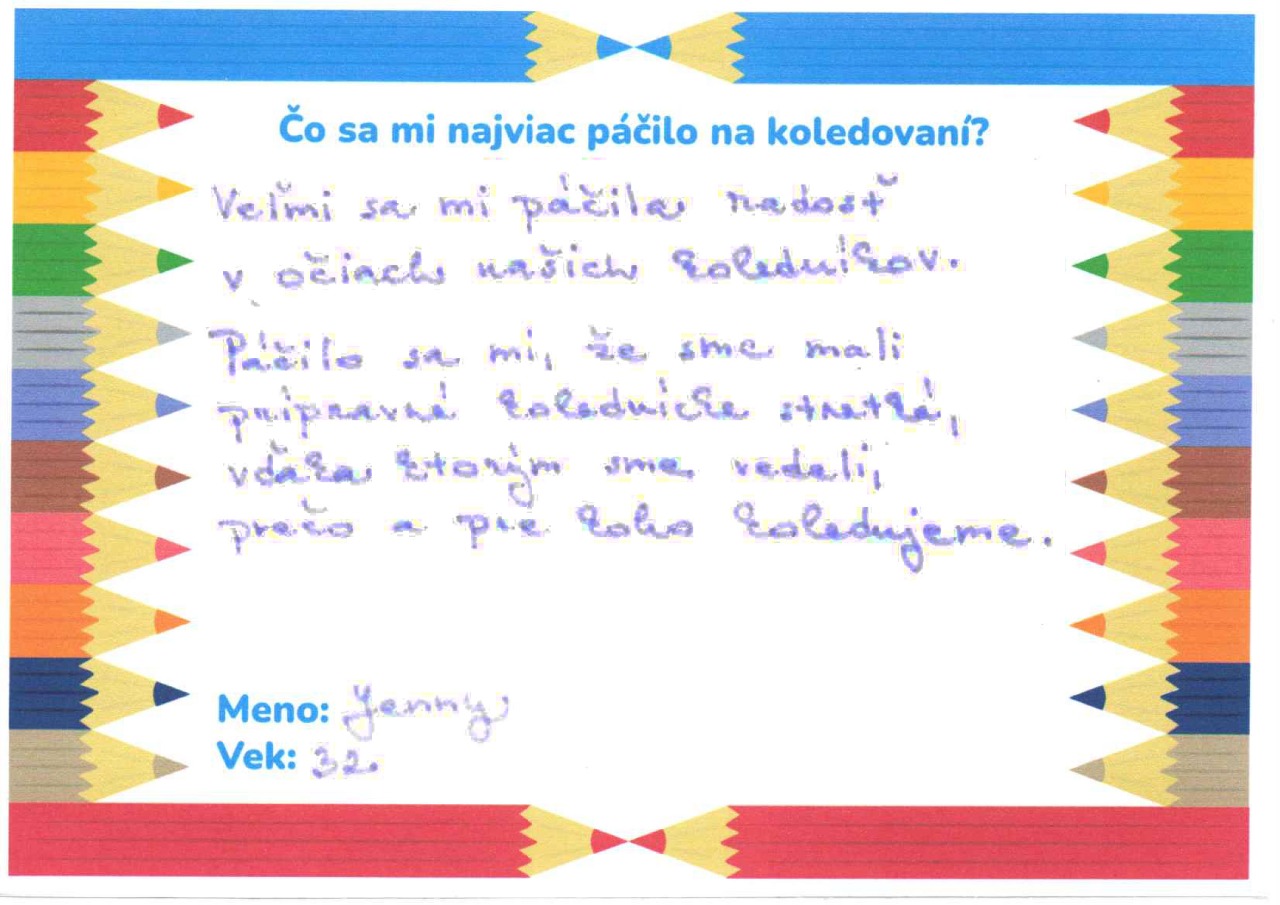 Čo sa mi najviac páčilo na koledovaní?
Veľmi sa mi páčila radosť
v očiach našich koledníkov.
Páčilo sa mi, že sme mali
prípravné kolednícke stretká,
vďaka ktorým sme vedeli,
prečo a pre koho koledujeme.
Meno: Jenny
Vek: 32